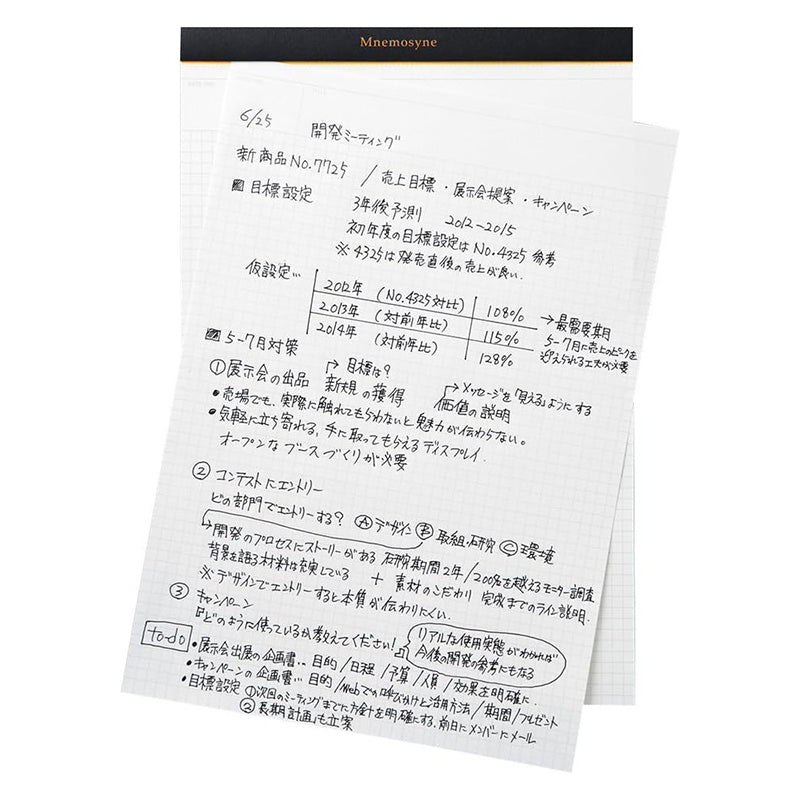 Mnemosyne
6/25 開発ミーティング
新商品No.7725 / 売上目標・展示会提案・キャンペーン
目標設定 3年後予測 2012-2015
初年度の目標設定はNo.4325 参考
※4325は発売直後の売上が良い.
仮設定…
2012年 (No.4325対比) 108%
2013年 (対前年比) 115%
2014年 (対前年比) 128%
→最需要期
5-7月に売上のピークを
迎えられる工夫が必要
5-7月対策
①展示会の出品 →目標は?
新規の獲得
→メッセージを「見える」ようにする
価値の説明
・売場でも、実際に触れてもらわないと魅力が伝わらない。
・気軽に立ち寄れる、手に取ってもらえるディスプレイ.
オープンなブースづくりが必要
②コンテストにエントリー
どの部門でエントリーする? Ⓐデザイン Ⓑ取組・研究 Ⓒ環境
→開発のプロセスにストーリーがある 研究期間2年/200名を越えるモニター調査
背景を語る材料は充実している + 素材のこだわり 完成までのライン説明.
※デザインでエントリーすると本質が伝わりにくい.
③キャンペーン
『どのように使っているか教えてください!』
リアルな使用実態がわかれば
今後の開発の参考にもなる
to-do
・展示会出展の企画書… 目的/日程/予算/人員/効果を明確に.
・キャンペーンの企画書… 目的/Webでの呼びかけと活用方法/期間/プレゼント
・目標設定 ①次回のミーティングまでに方針を明確にする、前日にメンバーにメール
②「長期計画」も立案